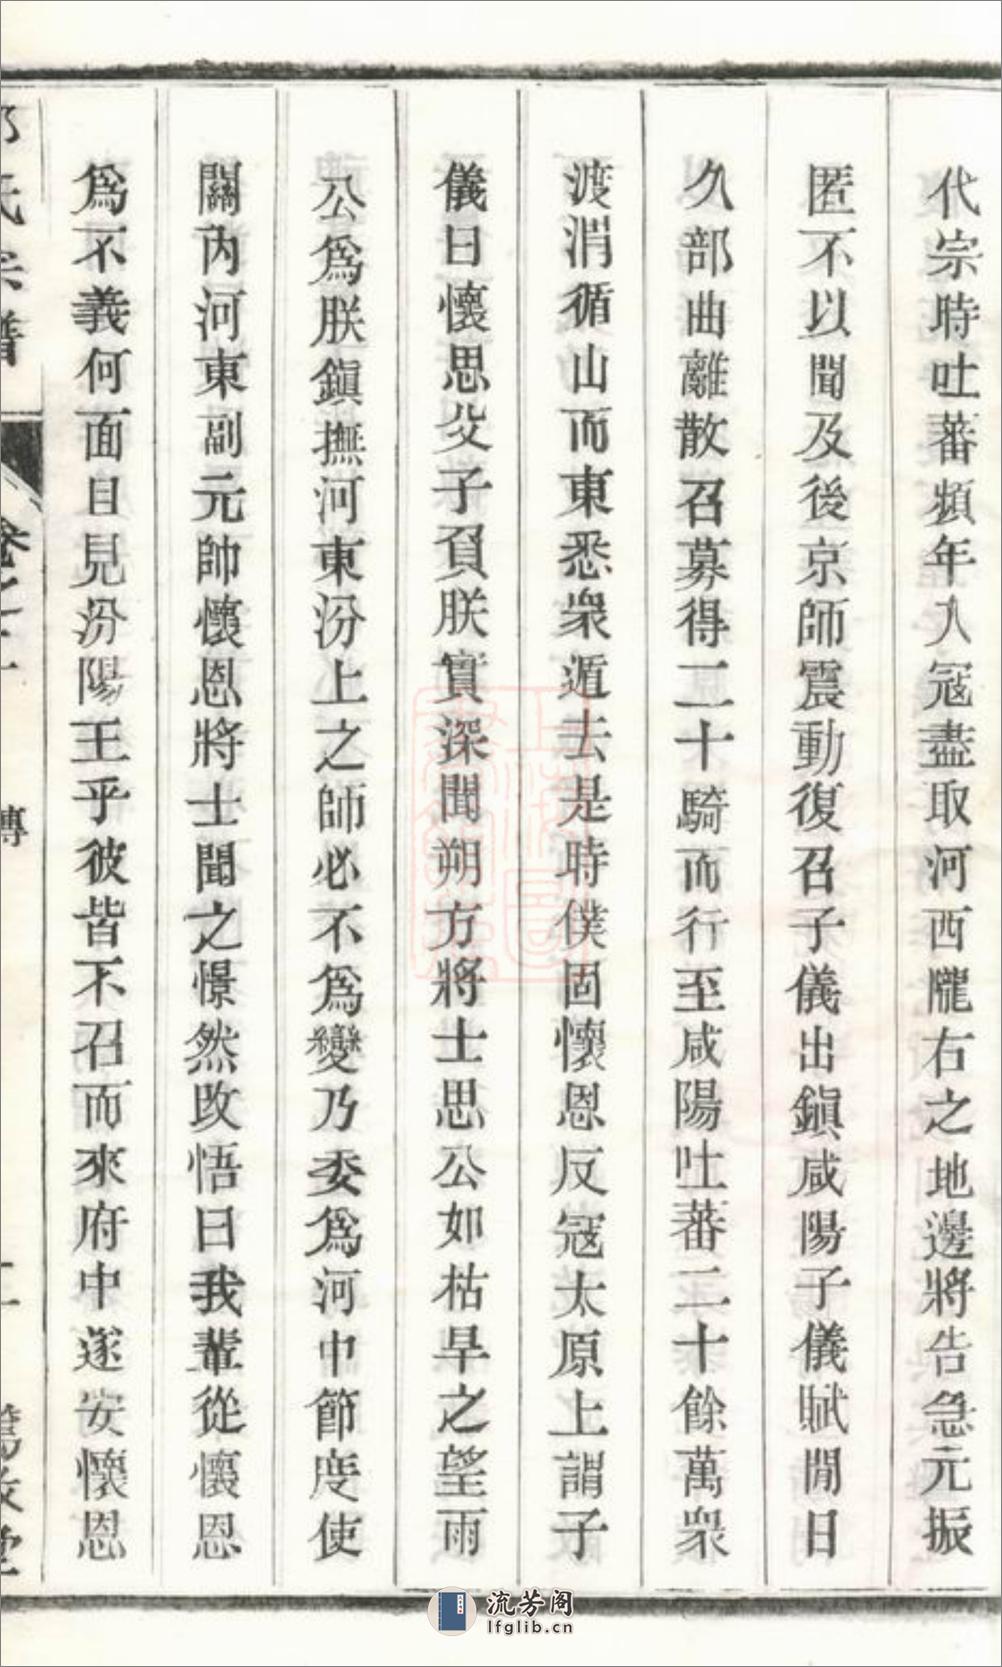 代宗時吐蕃頻年入冦盡取河西隴右之地邊將告急元振
匿不以聞及後京師震動復召子儀出鎭咸陽子儀賦閒日
久部曲離散召募得二十騎而行至咸陽吐蕃二十餘萬衆
渡渭循山而東悉衆遁去是時僕固懷恩反冦太原上謂子
儀曰懷思父子負朕實深聞朔方將士思公如枯旱之望雨
公爲朕鎭撫河東汾上之師必不爲變乃委爲河中節度使
關内河東副元帥懷恩將士聞之憬然改悟曰我輩從懷恩
爲不義何面目見汾陽王乎彼皆不召而來府中遂安懷恩
氏宗譜
卷之
傳
流芳阁
lfglib.cn